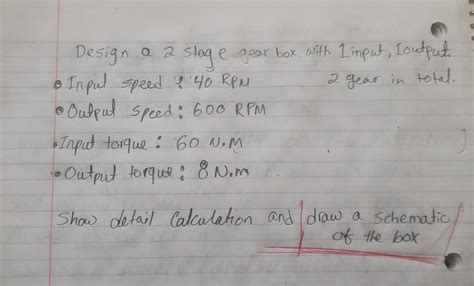 Design a 2 stage gear box with 1 input, 1 output.
• Input speed : 40 RPM 2 gear in total.
• Output speed : 600 RPM
• Input torque : 60 N.M
• Output torque : 8 N.m
Show detail Calculation and draw a schematic
of the box